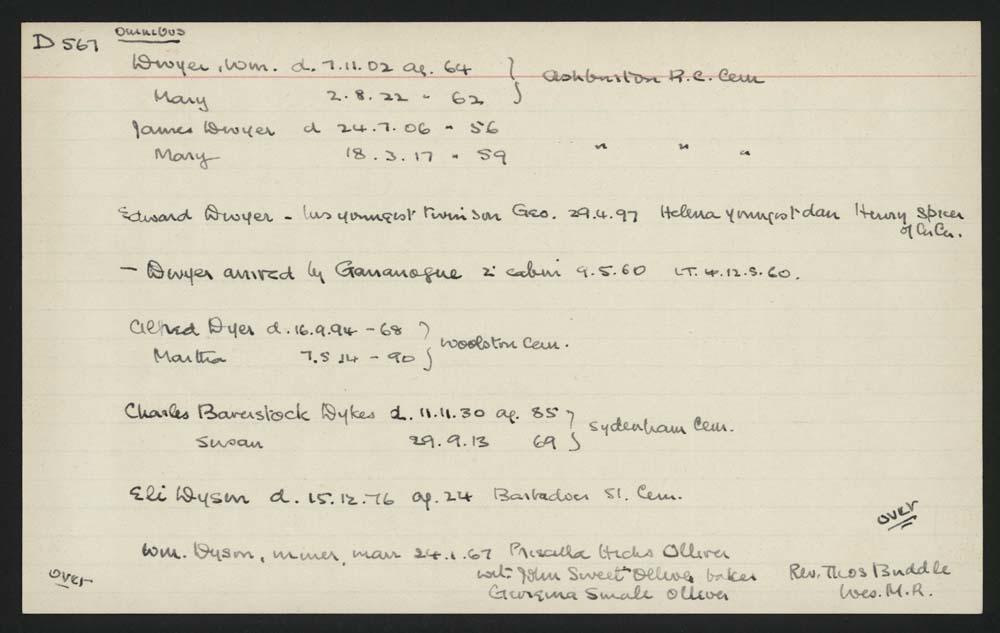 D 567 Omnibus
Dwyer, Wm. d. 7.11.02 ag. 64 } Ashburton R.C. Cem
Mary 2.8.22 " 62
James Dwyer d 24.7.06 " 56
Mary 18.3.17 " 59 " " "
Edward Dwyer - his youngest twin son Geo. 29.4.97 Helena youngest dau Henry Spicer
of ChCh.
- Dwyer arrived by Gananogue 2' cabin 9.5.60 LT. 4.12.5.60.
Alfred Dyer d. 16.9.94 - 68 } Woolston Cem.
Martha 7.5.14 - 90
Charles Baverstock Dykes d. 11.11.30 ag. 85 } Sydenham Cem.
Susan 29.9.13 69
Eli Dyson d. 15.12.76 ag. 24 Barbadoes St. Cem.
over
Wm. Dyson, miner, marr 24.1.67 Priscilla Hicks Olliver
wit: John Sweet Olliver baker Rev. Thos Buddle
over Georgina Smale Olliver Wes. M.R.